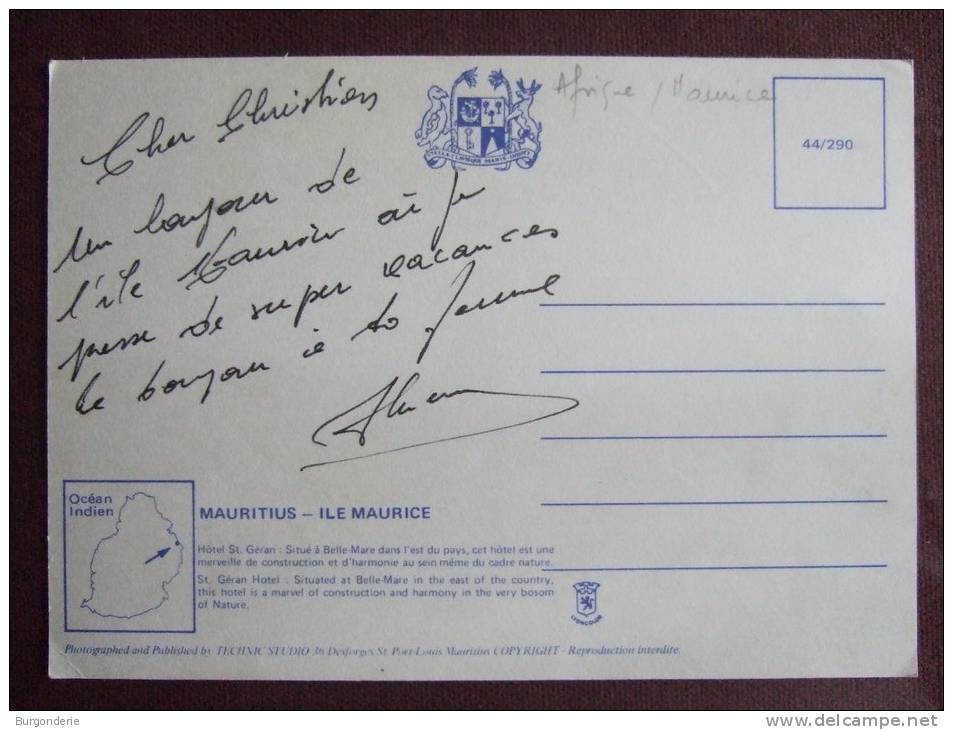 Afrique / Maurice
44/290
Cher Christian
Un bonjour de
l'île Maurice où je
passe de super vacances
le bonjour à ta femme
STELLA CLAVISQUE MARIS INDICI
Océan
Indien
MAURITIUS – ILE MAURICE
Hôtel St. Géran : Situé à Belle-Mare dans l'est du pays, cet hôtel est une
merveille de construction et d'harmonie au sein même du cadre nature.
St. Géran Hotel : Situated at Belle-Mare in the east of the country,
this hotel is a marvel of construction and harmony in the very bosom
of Nature.
LYONCOLOR
Photographed and Published by TECHNIC STUDIO 36 Desforges St. Port-Louis Mauritius COPYRIGHT - Reproduction interdite.
Burgonderie
www.delcampe.net